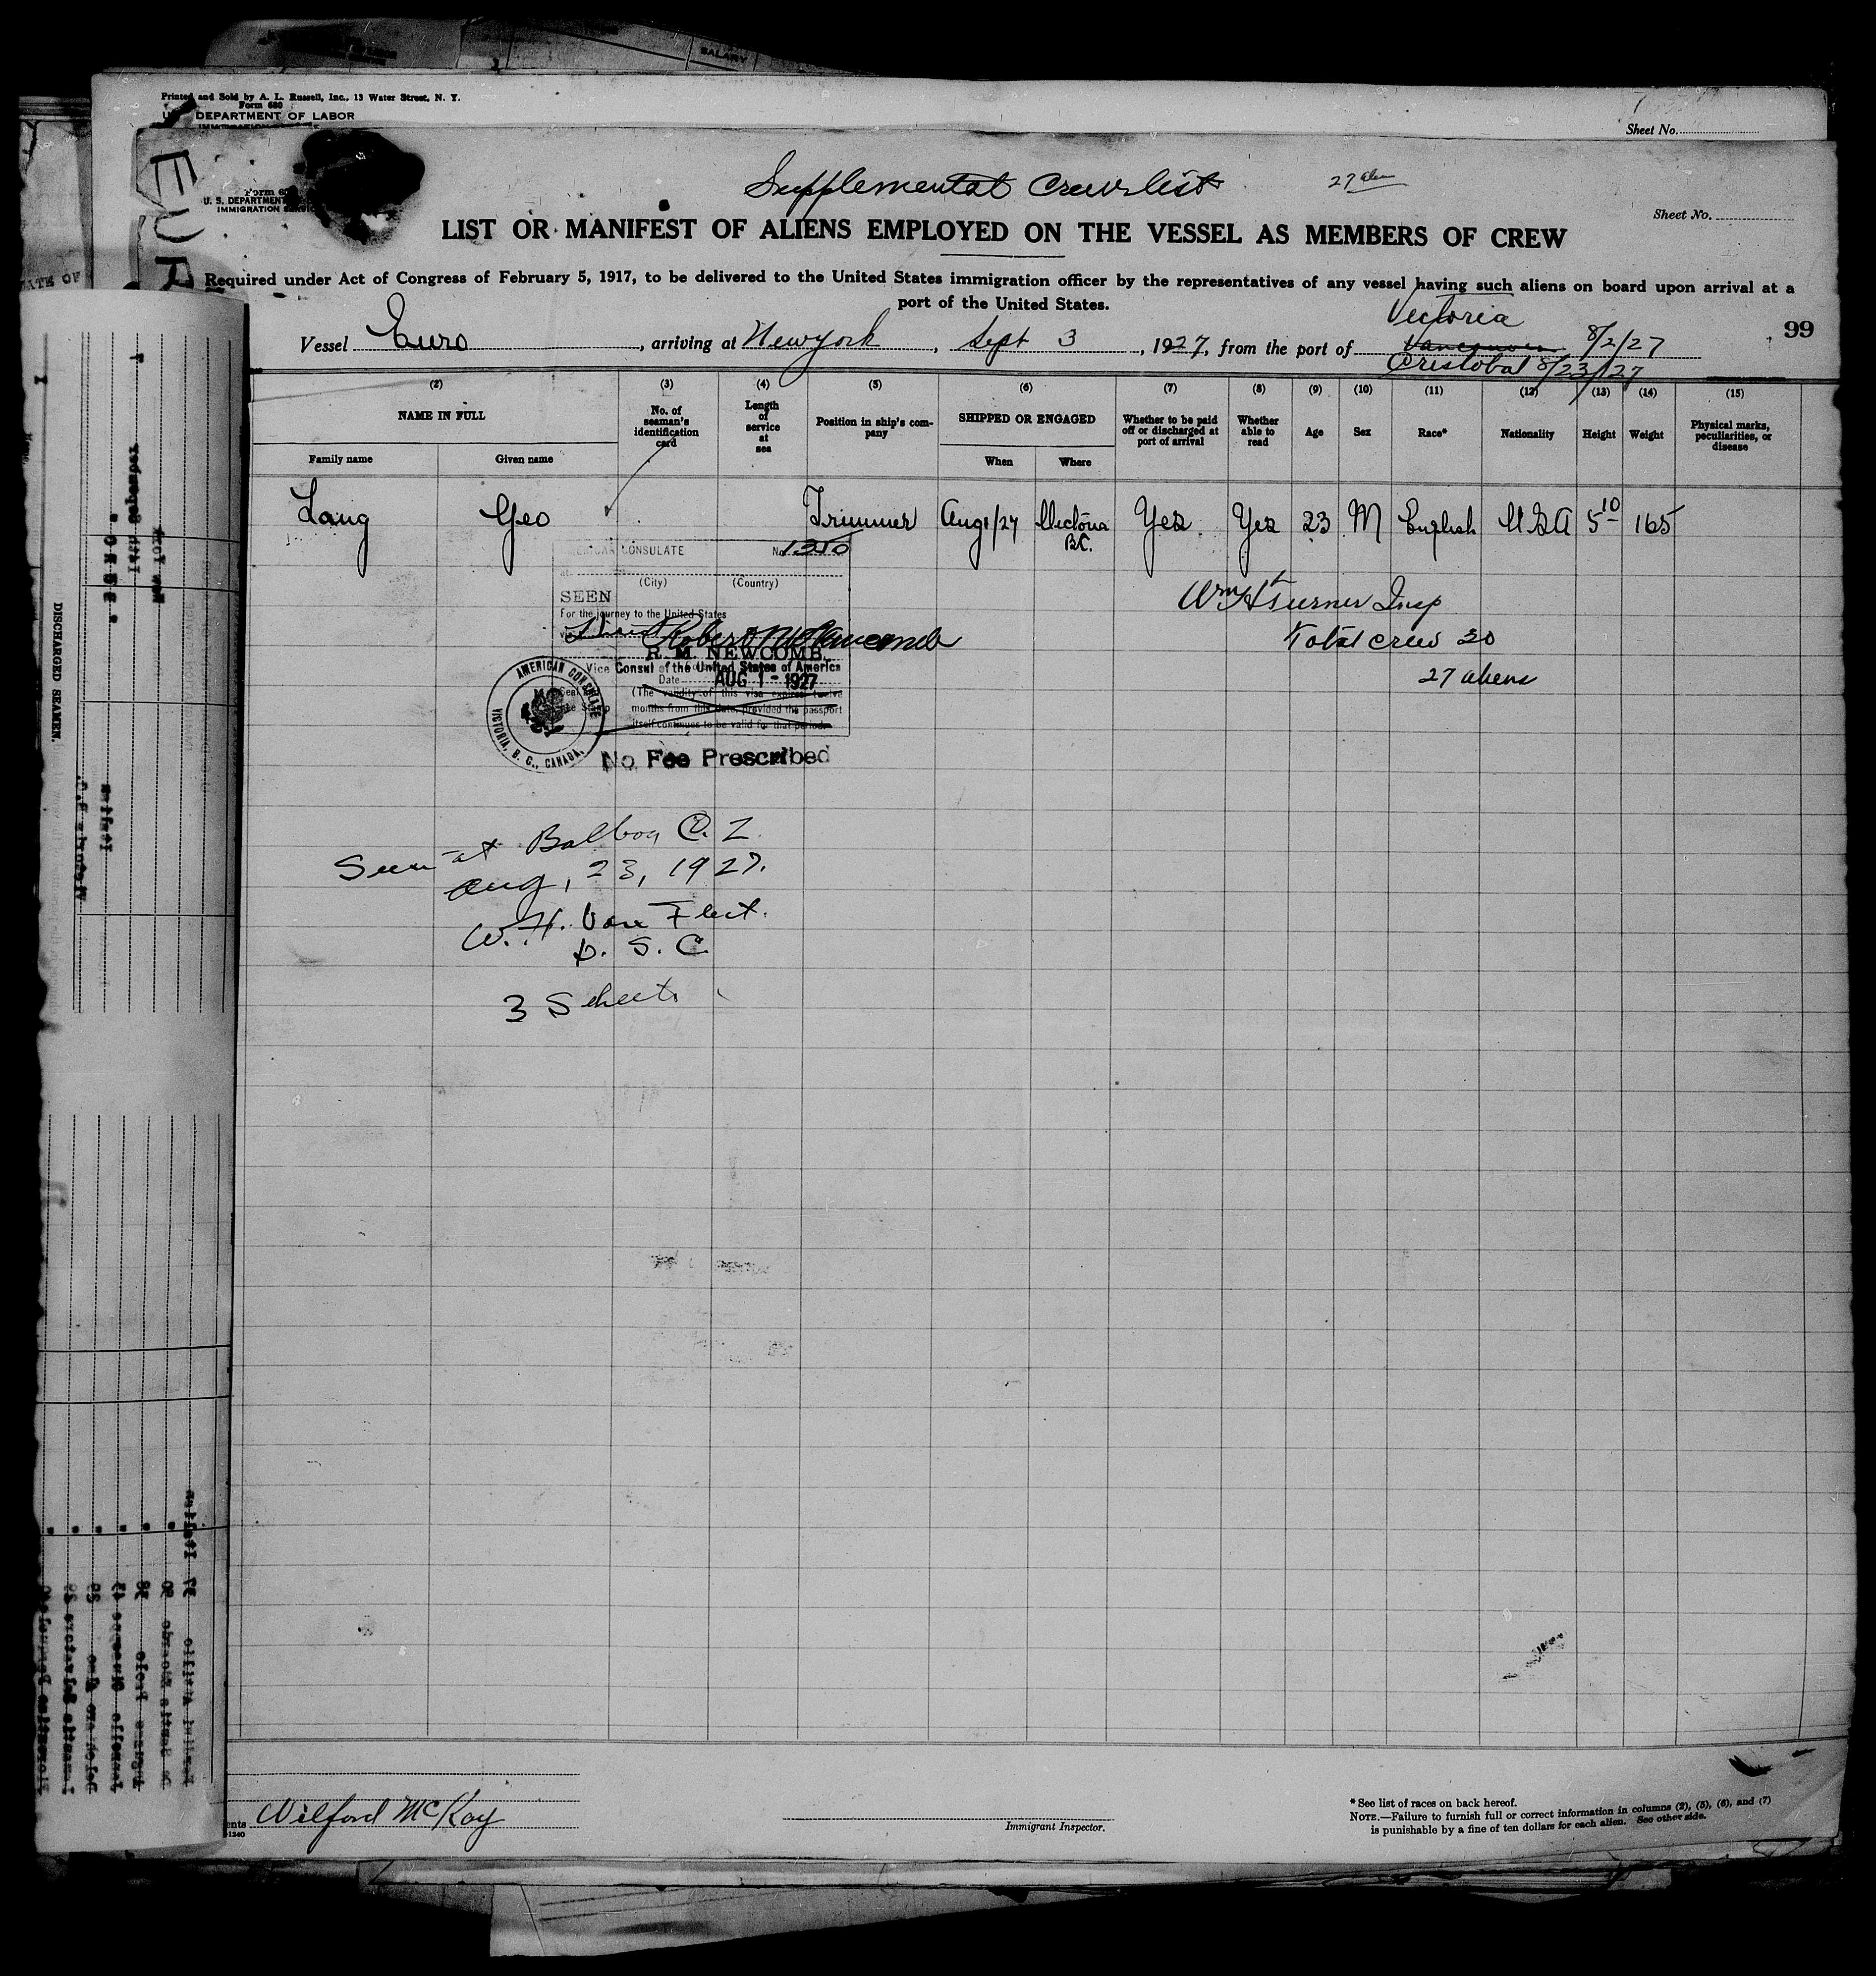 SALARY
Printed and Sold by A. L. Russell, Inc., 13 Water Street, N. Y.
Form 680
DEPARTMENT OF LABOR
Sheet No.
EUR
Supplemental Crew list
27 alien
Form
U. S. DEPARTMENT
IMMIGRATION
Sheet No.
LIST OR MANIFEST OF ALIENS EMPLOYED ON THE VESSEL AS MEMBERS OF CREW
Required under Act of Congress of February 5, 1917, to be delivered to the United States immigration officer by the representatives of any vessel having such aliens on board upon arrival at a
port of the United States.
Victoria
Vessel Euro, arriving at New york, Sept 3, 1927, from the port of Vancouver 8/2/27
99
Cristobal 8/23/27
(2) (3) (4) (5) (6) (7) (8) (9) (10) (11) (12) (13) (14) (15)
NAME IN FULL
Family name
Given name
No. of seaman's identification card
Length of service at sea
Position in ship's company
SHIPPED OR ENGAGED
When
Where
Whether to be paid off or discharged at port of arrival
Whether able to read
Age
Sex
Race*
Nationality
Height
Weight
Physical marks, peculiarities, or disease
Lang Geo Trimmer Aug 1/27 Victoria B.C. Yes Yes 23 M English U.S.A 5 10 165
AMERICAN CONSULATE No. 1250
at
(City) (Country)
SEEN
For the journey to the United States
R. M. NEWCOMB,
Vice Consul of the United States of America
Date AUG 1 - 1927
(The validity of this visa expires twelve
months from this date, provided the passport
itself continues to be valid for that period.
AMERICAN CONSULATE
VICTORIA, B. C., CANADA.
No Fee Prescribed
Wm H Turner Insp
Total crew 30
27 aliens
Seen at Balboa C. Z
Aug, 23, 1927.
W. H. Van Fleet.
D. S. C.
3 Sheets
DISCHARGED SEAMEN.
Wilford McKay
*See list of races on back hereof.
NOTE.—Failure to furnish full or correct information in columns (2), (5), (6), and (7)
is punishable by a fine of ten dollars for each alien. See other side.
Immigrant Inspector.